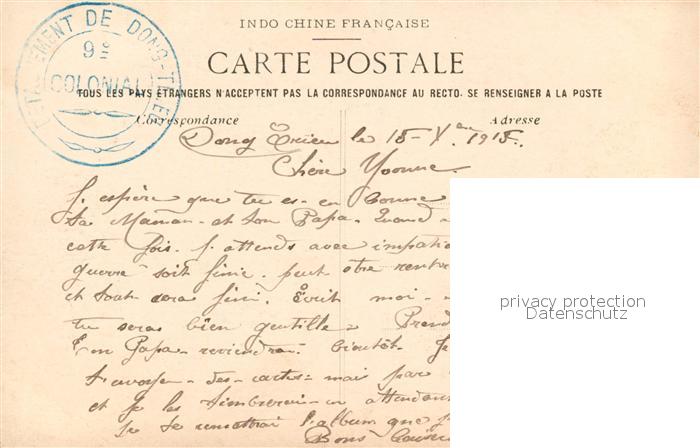 INDO CHINE FRANÇAISE
CARTE POSTALE
TOUS LES PAYS ÉTRANGERS N'ACCEPTENT PAS LA CORRESPONDANCE AU RECTO. SE RENSEIGNER A LA POSTE
Correspondance
Adresse
9e
COLONIAL
DÉTACHEMENT DE DONG-TRIEU
Dong Trieu le 15 - X 1915.
Chère Yvonne
J. espère que tu es en bonne
ta Maman et ton Papa. Quand
cette fois. J. attends avec impati
guerre soit finie. peut otre rentre
et tout sera fini. Écrit moi
tu seras bien gentille. Prend
Ton Papa reviendra bientôt. Je
t'avoyer des cartes mai par
et je les timbrerai en attendan
je te remettrai l'album que j
Bons
privacy protection
Datenschutz